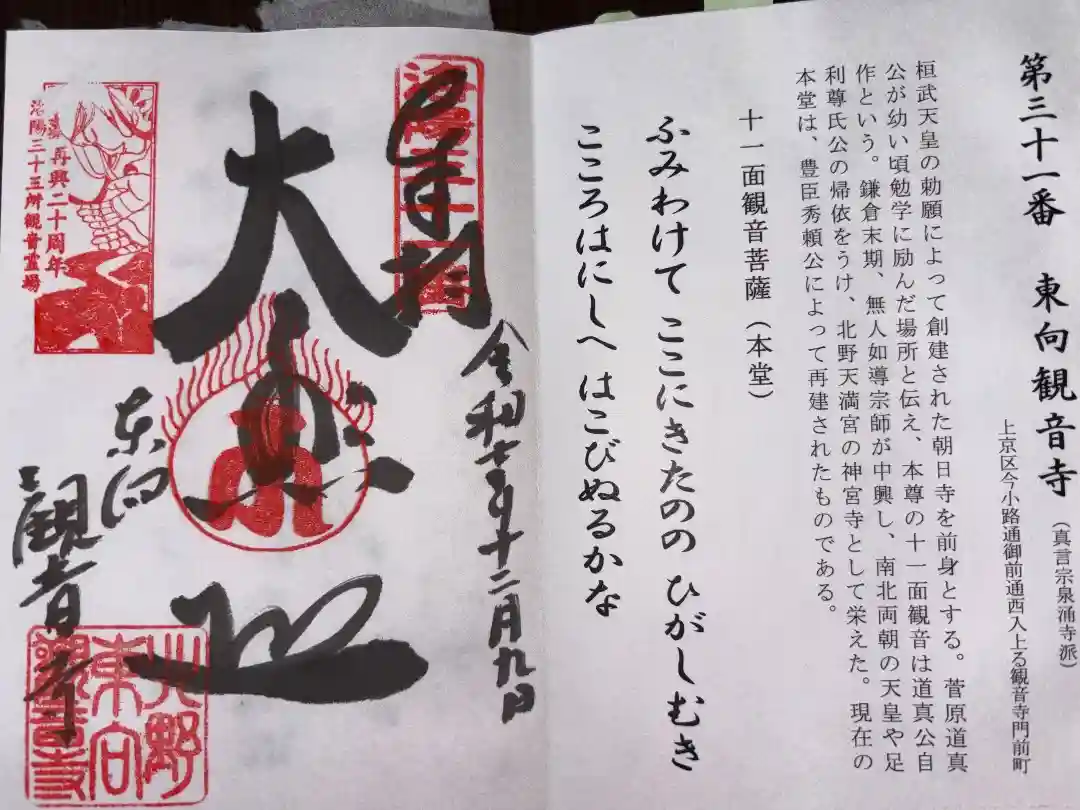 第三十一番 東向観音寺（真言宗泉涌寺派）
上京区今小路通御前通西入上る観音寺門前町
桓武天皇の勅願によって創建された朝日寺を前身とする。菅原道真
公が幼い頃勉学に励んだ場所と伝え、本尊の十一面観音は道真公自
作という。鎌倉末期、無人如導宗師が中興し、南北両朝の天皇や足
利尊氏公の帰依をうけ、北野天満宮の神宮寺として栄えた。現在の
本堂は、豊臣秀頼公によって再建されたものである。
十一面観音菩薩（本堂）
ふみわけて ここにきたのの ひがしむき
こころはにしへ はこびぬるかな
令和七年十二月九日
大悲
東向
観音寺
再興二十周年
洛陽三十三所観音霊場
北野
東向
観音寺